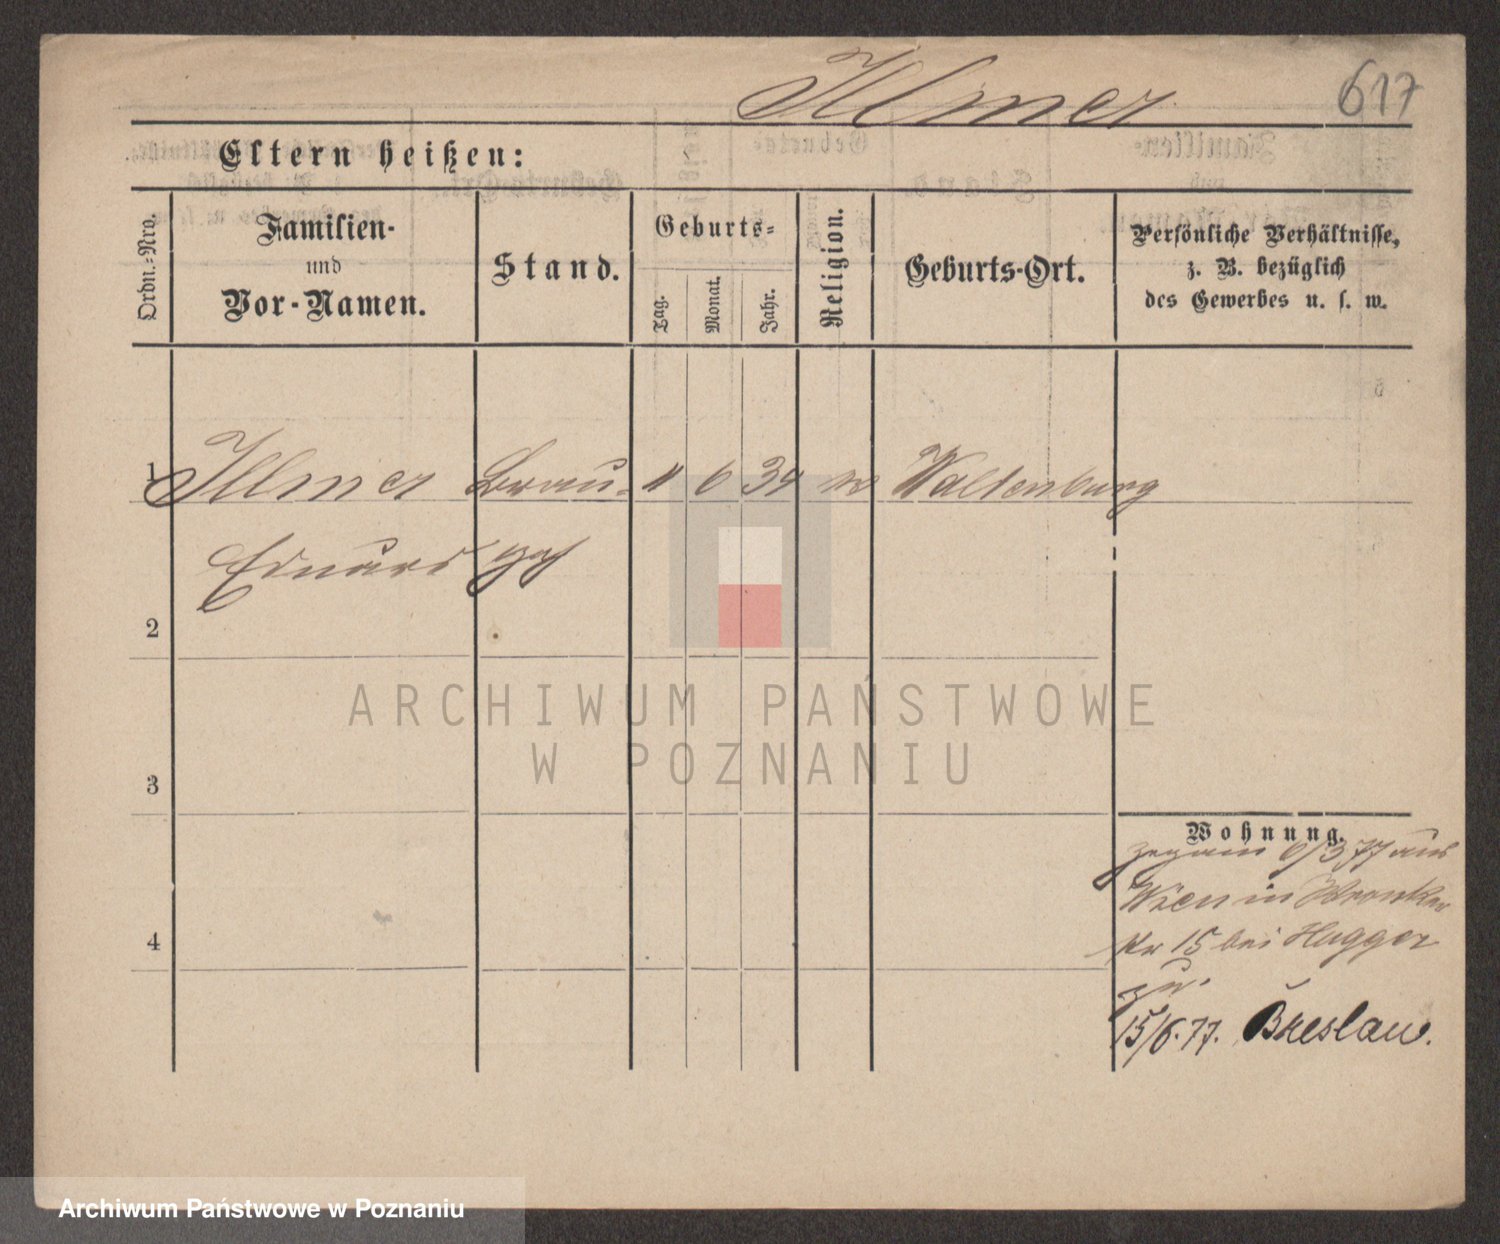 Illmer 617
Eltern heißen:
Ordn.-Nro.
Familien-
und
Vor-Namen.
Stand.
Geburts-
Tag.
Monat.
Jahr.
Religion.
Geburts-Ort.
Persönliche Verhältnisse,
z. B. bezüglich
des Gewerbes u. s. w.
1 Illmer Brau- 6 34 Waldenburg
Eduard
2
3
4
Wohnung.
6/3 77 aus
Wien in Wronker
Str 15 bei Hugger
zu.
15/6.77. Breslau.
ARCHIWUM PAŃSTWOWE
W POZNANIU
Archiwum Państwowe w Poznaniu